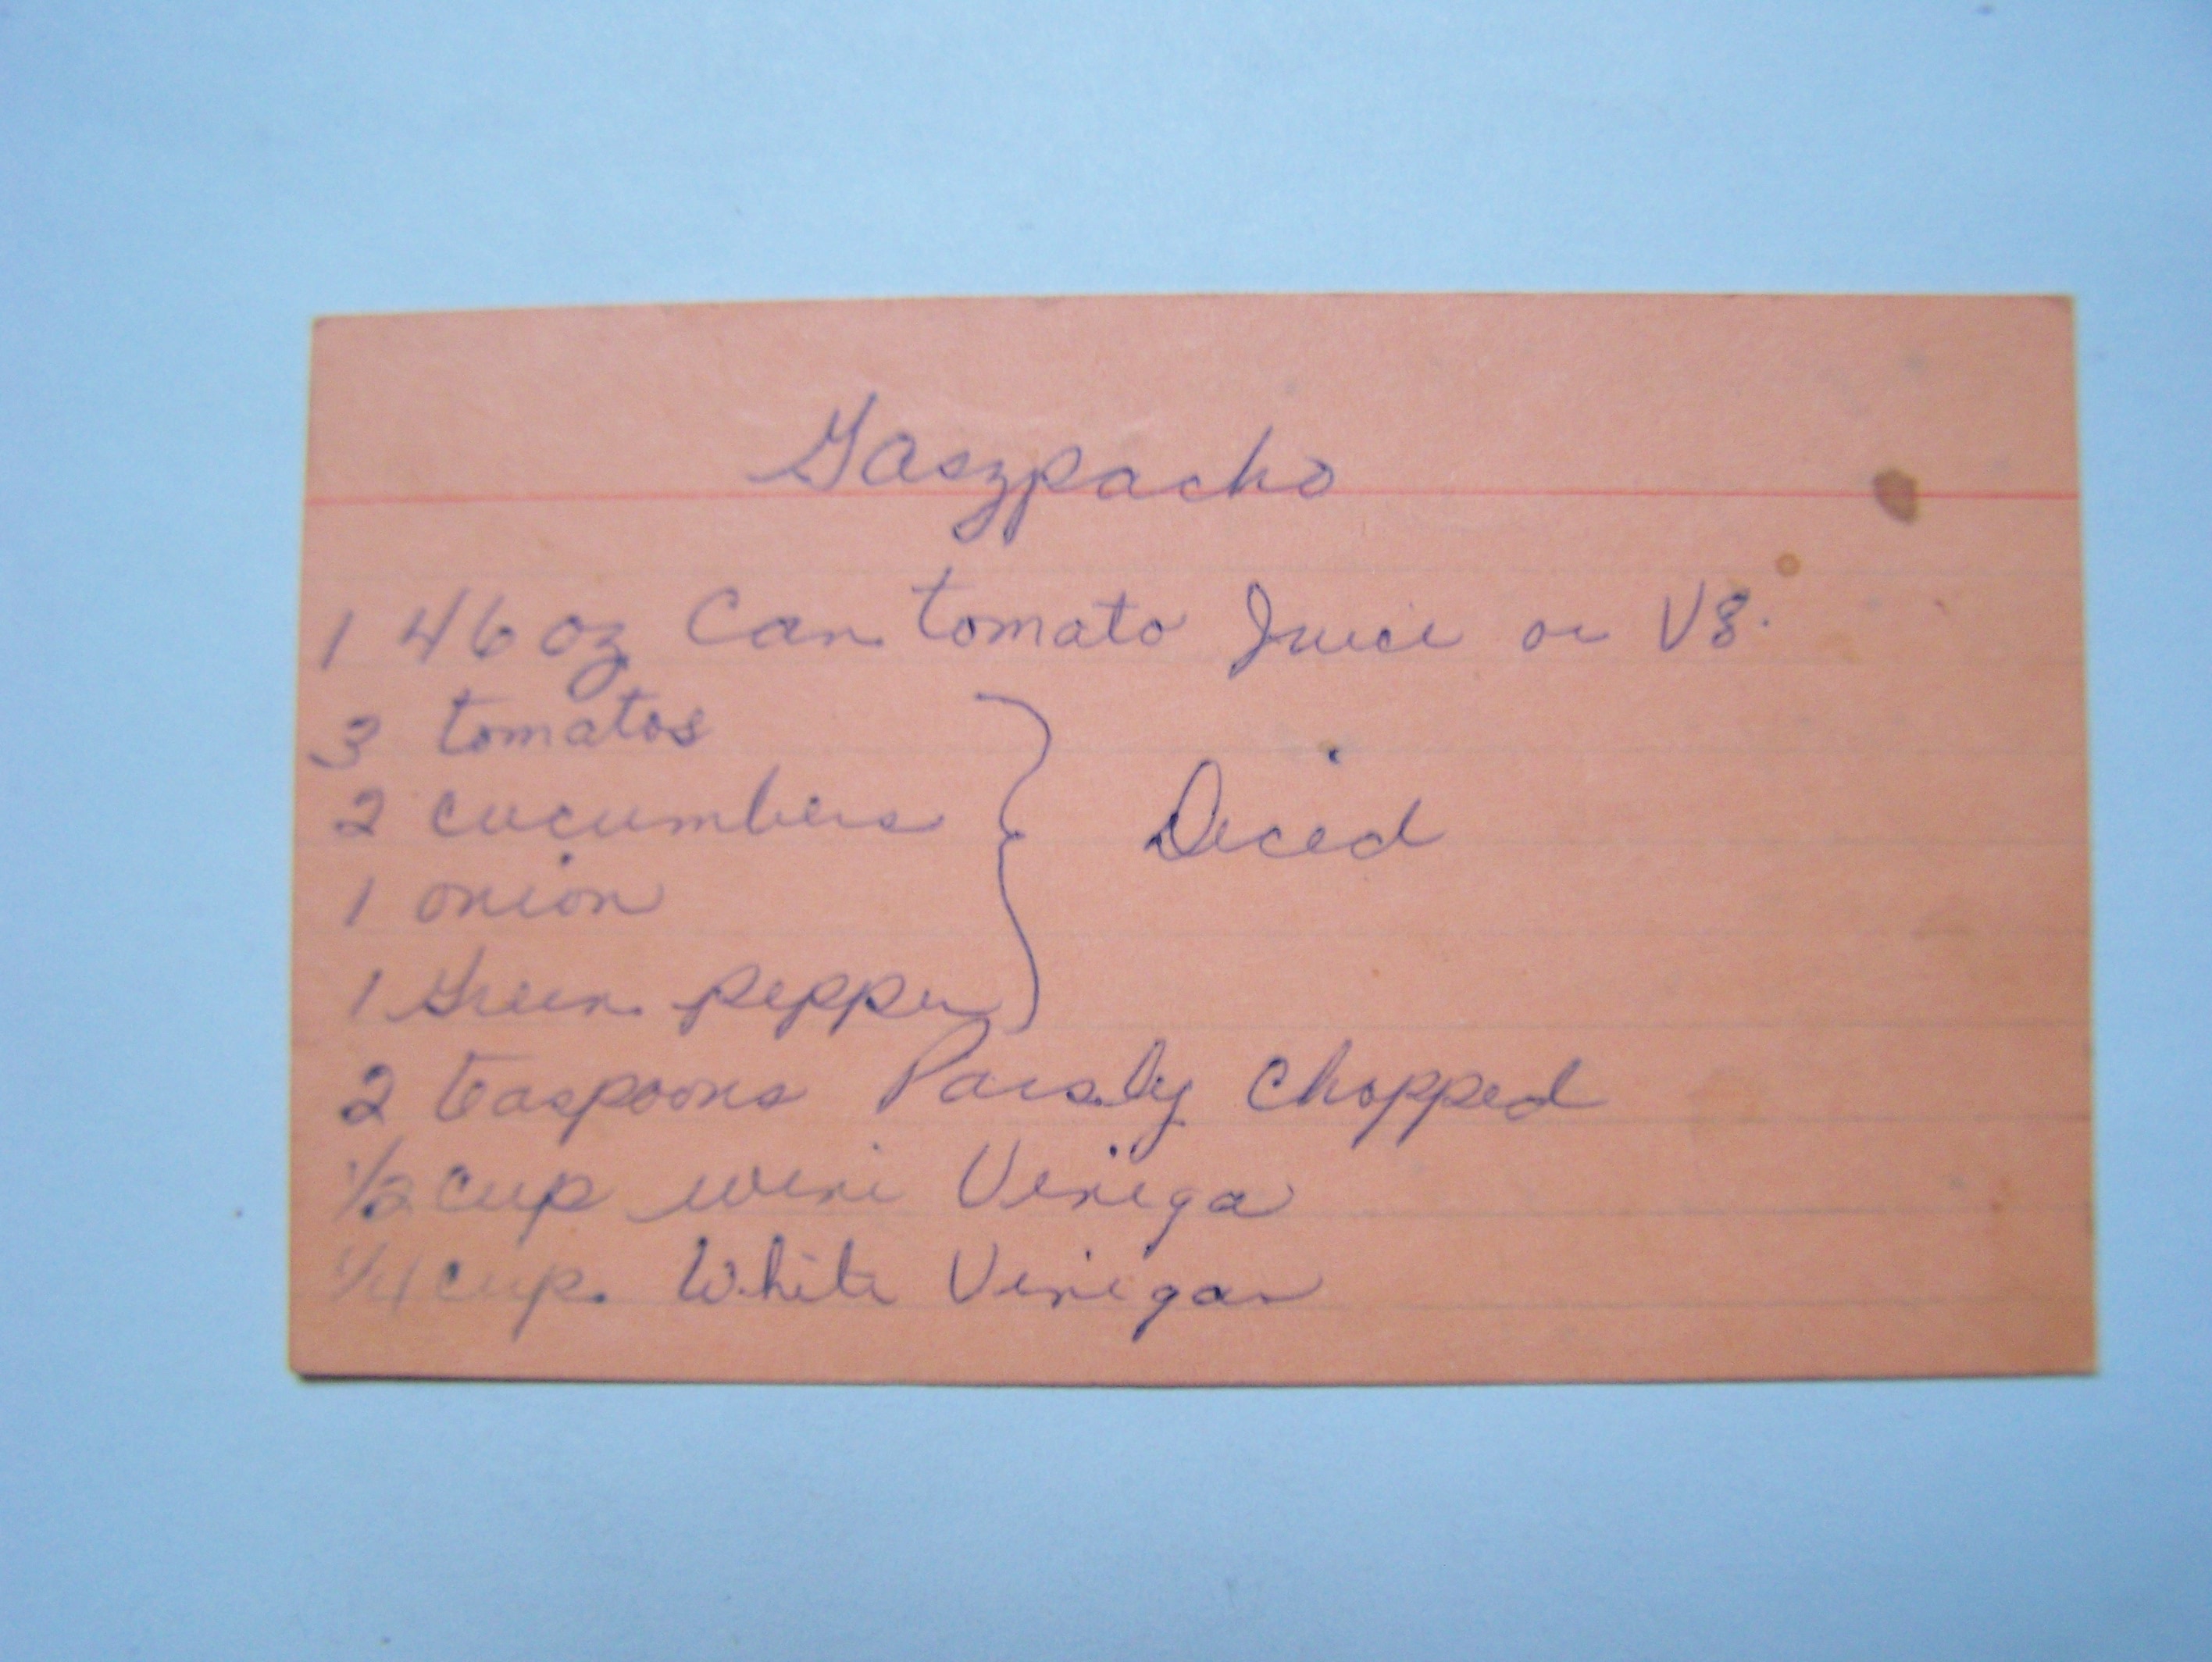 Gaszpacho
1 46 oz Can tomato Juice or V8.
3 tomatos
2 cucumbers
Diced
1 onion
1 Green pepper
2 teaspoons Parsly Chopped
1/2 cup wine Vinega
1/4 cup. White Vinegar